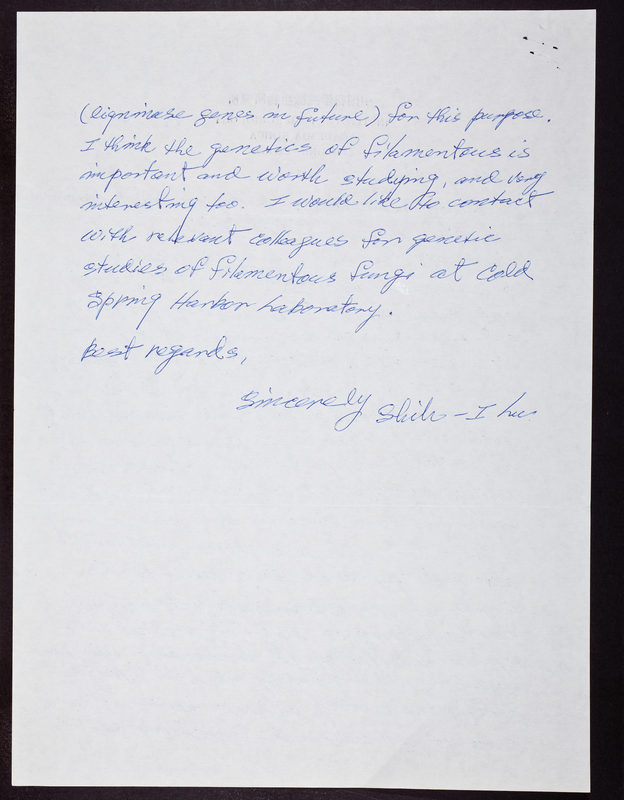 (ligninase genes in future) for this purpose.
I think the genetics of filamentous is
important and worth studying, and very
interesting too. I would like to contact
with relevant colleagues for genetic
studies of filamentous fungi at Cold
Spring Harbor Laboratory.
Best regards,
Sincerely Shih-I Lu